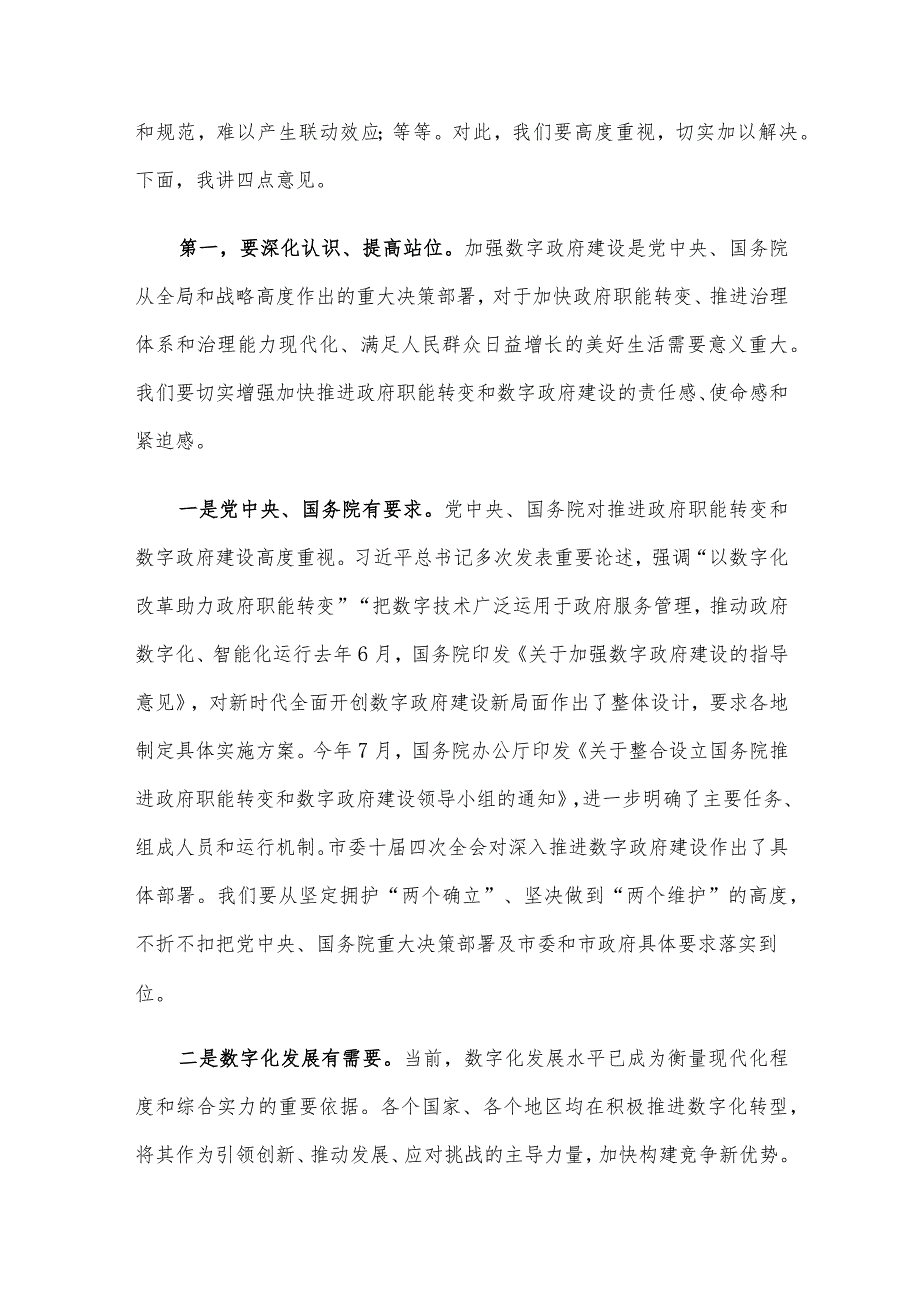 和规范，难以产生联动效应；等等。对此，我们要高度重视，切实加以解决。
下面，我讲四点意见。
第一，要深化认识、提高站位。加强数字政府建设是党中央、国务院
从全局和战略高度作出的重大决策部署，对于加快政府职能转变、推进治理
体系和治理能力现代化、满足人民群众日益增长的美好生活需要意义重大。
我们要切实增强加快推进政府职能转变和数字政府建设的责任感、使命感和
紧迫感。
一是党中央、国务院有要求。党中央、国务院对推进政府职能转变和
数字政府建设高度重视。习近平总书记多次发表重要论述，强调“以数字化
改革助力政府职能转变”“把数字技术广泛运用于政府服务管理，推动政府
数字化、智能化运行去年6月，国务院印发《关于加强数字政府建设的指导
意见》，对新时代全面开创数字政府建设新局面作出了整体设计，要求各地
制定具体实施方案。今年7月，国务院办公厅印发《关于整合设立国务院推
进政府职能转变和数字政府建设领导小组的通知》，进一步明确了主要任务、
组成人员和运行机制。市委十届四次全会对深入推进数字政府建设作出了具
体部署。我们要从坚定拥护“两个确立”、坚决做到“两个维护”的高度，
不折不扣把党中央、国务院重大决策部署及市委和市政府具体要求落实到
位。
二是数字化发展有需要。当前，数字化发展水平已成为衡量现代化程
度和综合实力的重要依据。各个国家、各个地区均在积极推进数字化转型，
将其作为引领创新、推动发展、应对挑战的主导力量，加快构建竞争新优势。